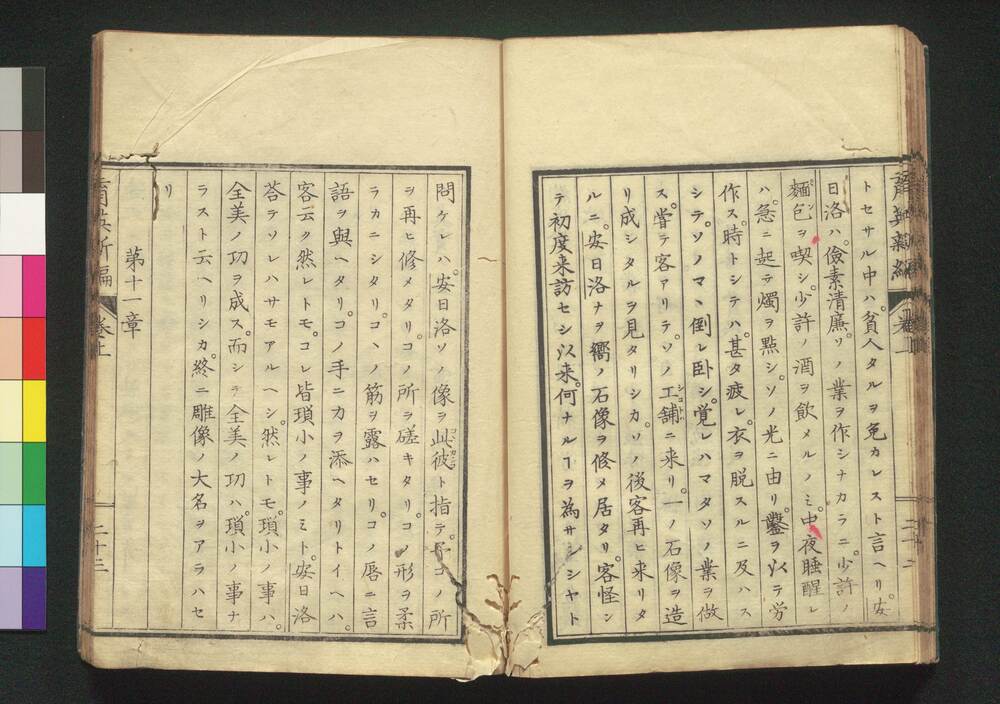 トセサル中ハ。貧人タルヲ免カレスト言ヘリ。安
日洛ハ。儉素清廉。ソノ業ヲ作シナカラニ。少許ノ
麵包ヲ喫シ。少許ノ酒ヲ飲メルノミ。中夜睡醒レ
ハ。急ニ起テ燭ヲ點シ。ソノ光ニ由リ。鑿ヲ以テ労
作ス。時トシテハ。甚タ疲レ。衣ヲ脱スルニ及ハス
シテ。ソノマヽ倒レ卧シ。覚レハマタソノ業ヲ做
ス。嘗テ客アリテ。ソノ工舗ニ来リ。一ノ石像ヲ造
リ成シタルヲ見タリシカ。ソノ後客再ヒ来リタ
ルニ。安日洛ナヲ嚮ノ石像ヲ修メ居タリ。客怪ン
テ初度来訪セシ以来。何ナルヿヲ為サシシヤト
問ケレハ。安日洛ソノ像ヲ此彼ト指テ。予コノ所
ヲ再ヒ修メタリ。コノ所ヲ磋キタリ。コノ形ヲ柔
ラカニシタリ。コヽノ筋ヲ露ハセリ。コノ唇ニ言
語ヲ與ヘタリ。コノ手ニ力ヲ添ヘタリトイヘハ。
客云ク然レトモ。コレ皆瑣小ノ事ノミト。安日洛
荅テソレハサモアルヘシ。然レトモ。瑣小ノ事ハ。
全美ノ功ヲ成ス。而シテ全美ノ功ハ。瑣小ノ事ナ
ラスト云ヘリシカ。終ニ雕像ノ大名ヲアラハセ
リ
第十一章
二十三